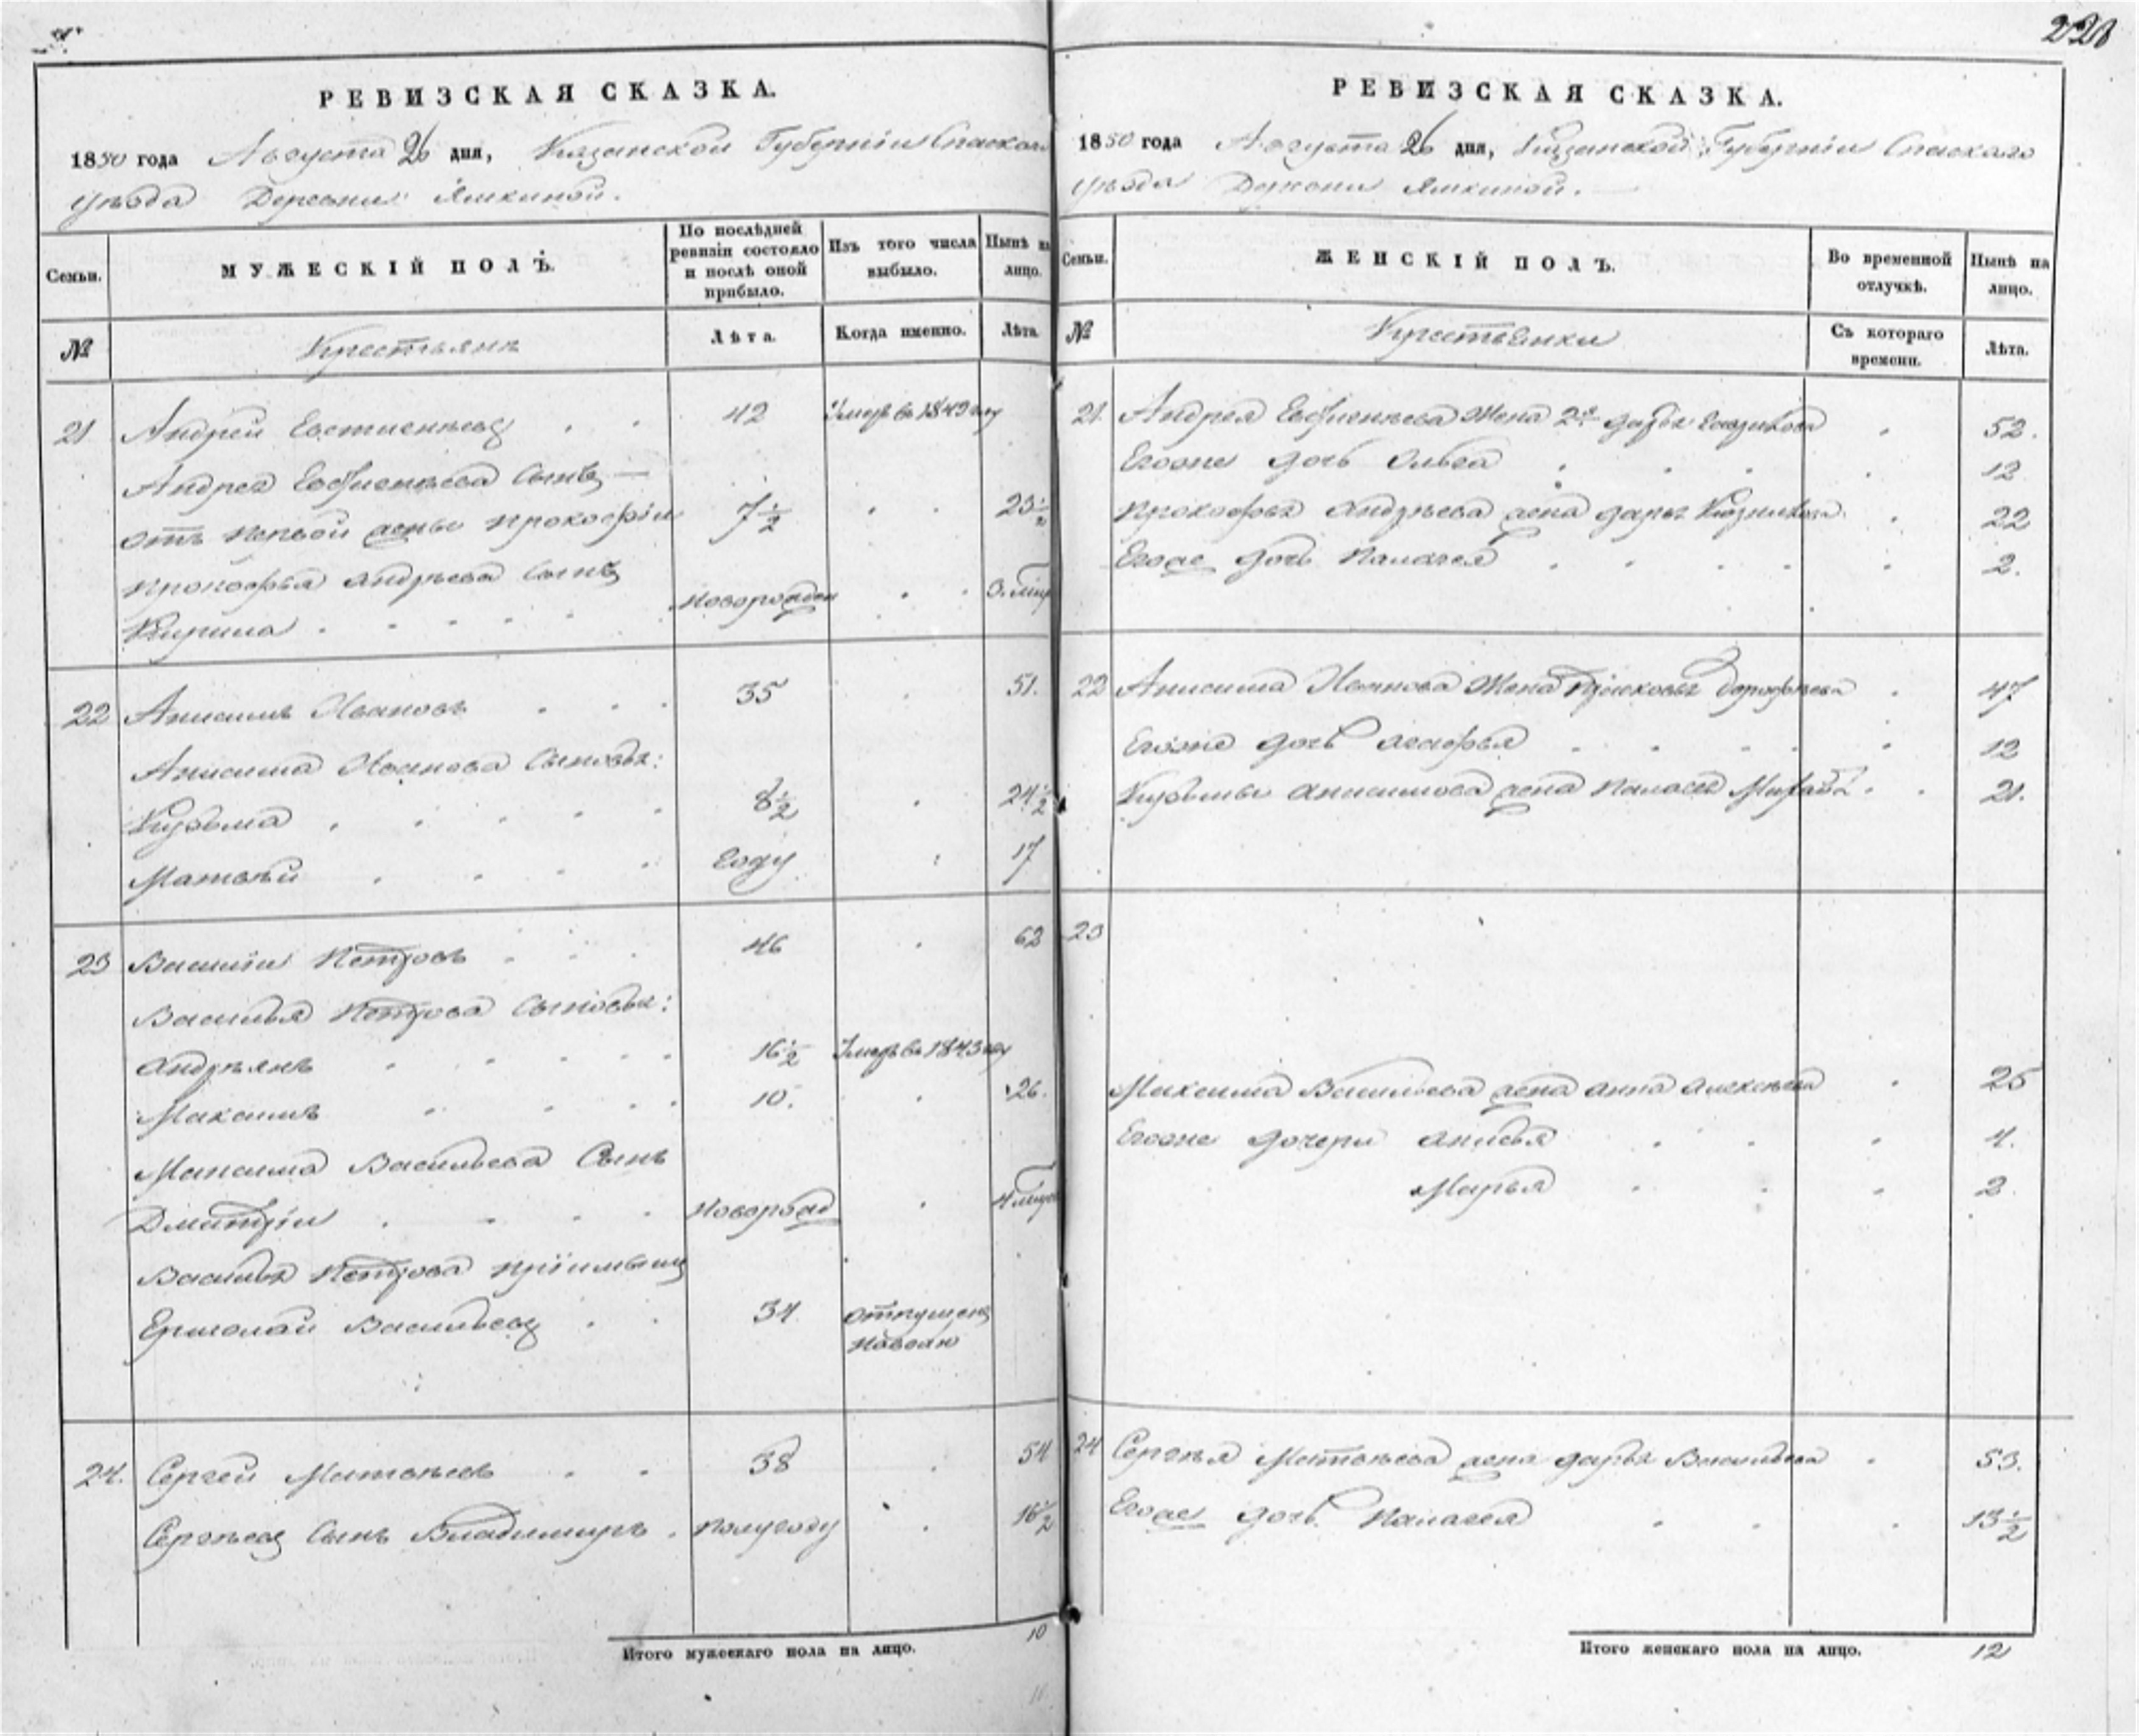 228
РЕВИЗСКАЯ СКАЗКА.
1850 года Августа 26 дня, Казанской Губерніи Спаскаго
уѣзда Деревни Ямкиной.
Семьи.
МУЖЕСКІЙ ПОЛЪ.
По послѣдней ревизіи состояло и послѣ оной прибыло.
Изъ того числа выбыло.
Нынѣ на лицо.
№
Крестьянъ
Лѣта.
Когда именно.
Лѣта
21 Андрей Евстигнеевъ 42 Умеръ въ 1849 году
Андрея Евстигнеева сынъ
отъ первой жены Прокофій 7½ 23½
Прокофья Андреева сынъ
Кирила новорожден 3. мѣс
22 Анисимъ Ивановъ 35 51.
Анисима Иванова сыновья:
Кузьма 8½ 24½
Матвѣй году 17
23 Василій Петровъ 46 62
Василья Петрова сыновья:
Андреянъ 16½ Умеръ въ 1843 году
Максимъ 10. 26.
Максима Васильева Сынъ
Дмитрій новорожд 4 мѣся
Василья Петрова пріимышъ
Ермолай Васильевъ 34 отпущенъ
на волю
24. Сергей Матвѣевъ 38 54
Сергѣевъ сынъ Владимиръ полугоду 16½
Итого мужескаго пола на лицо. 10
РЕВИЗСКАЯ СКАЗКА.
1850 года Августа 26 дня, Казанской Губерніи Спаскаго
уѣзда Деревни Ямкиной.
Семьи.
ЖЕНСКІЙ ПОЛЪ.
Во временной отлучкѣ.
Нынѣ на лицо.
№
Крестьянки
Съ котораго времени.
Лѣта.
21. Андрея Евстигнеева жена 2я Дарья 52.
Егоже дочь Ольга 12
Прокофья Андреева жена Дарья 22
Егоже дочь Палагея 2.
22 Анисима Иванова жена Дорофѣева 47
Егоже дочь Агафья 12
Кузьмы Анисимова жена 21.
23
Максима Васильева жена Анна Алексѣева 25
Егоже дочери Анисья 4.
Марья 2.
24 Сергѣя Матвѣева жена Дарья Васильева 53.
Егоже дочь Палагея 13½
Итого женскаго пола на лицо. 12